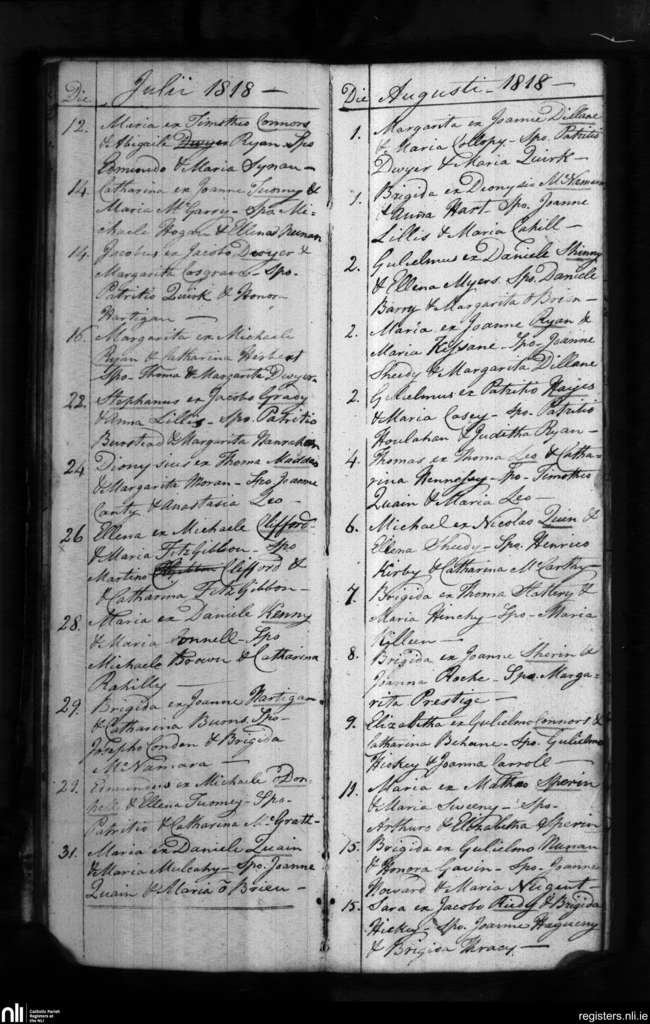 Die Julii 1818 —
12. Maria ex Timotheo Connors
& Abigaele Dwyer Ryan Spo
Edmundo & Maria Synan —
14. Catharina ex Joanne Tuomy &
Maria McGarry - Spo. Mi-
chaele Hogan & Ellena Neenan
14. Jacobus ex Jacobo Dwyer &
Margarita Cosgrave - Spo.
Patritio Quirk & Honora
Hartigan —
16. Margarita ex Michaele
Ryan & Catharina Herbert
Spo. Thoma & Margarita Dwyer
22. Stephanus ex Jacobo Grady
& Anna Lillis - Spo. Patritio
& Margarita Hanrahan
24 Dionysius ex Thoma Madden
& Margarita Moran - Spo Joanne
Canty & Anastasia Leo -
26 Ellena ex Michaele Clifford -
& Maria FitzGibbon - Spo
Martino Clifford &
& Catharina FitzGibbon -
28. Maria ex Daniele Kenny
& Maria Connell - Spo
Michaele Brown & Catharina
Rahilly
29. Brigida ex Joanne Hartigan
& Catharina Burns Spo -
Josepho Condon & Brigida
McNamara —
29. Edmundus ex Michaele ODon-
nell & Ellena Tuomey - Spo -
Patritio & Catharina McGrath -
31. Maria ex Daniele Quain
& Maria Mulcahy - Spo. Joanne
Quain & Maria O Brien -
Die Augusti - 1818 —
1. Margarita ex Joanne Dillane
& Maria Collopy - Spo. Patritio
Dwyer & Maria Quirk -
1. Brigida ex Dionysio McNamara
& Anna Hart Spo. Joanne
Lillis & Maria Cahill -
2. Gulielmus ex Daniele Shinny
& Ellena Myers. Spo. Daniele
Barry & Margarita O Brien -
2. Maria ex Joanne Ryan &
Maria Kissane - Spo - Joanne
Sheedy & Margarita Dillane
2. Gulielmus ex Patritio Hayes
& Maria Casey - Spo. Patritio
Houlahan & Juditha Ryan -
4. Thomas ex Thoma Leo & Catha-
rina Hennessy - Spo - Timotheo
Quain & Maria Leo -
6. Michael ex Nicolao Quin &
Ellena Sheedy - Spo. Henrico
Kirby & Catharina McCarthy -
7. Brigida ex Thoma Slattery &
Maria Hinchy - Spo - Maria
Killeen -
8. Brigida ex Joanne Sherin &
Joanna Roche - Spo. Marga-
rita Prestige -
9. Elizabetha ex Gulielmo Connors &
Catharina Behane - Spo. Gulielmo
Hickey & Joanna Carroll -
11. Maria ex Matheo Sperin
& Maria Sweeny - Spo -
Arthuro & Elizabetha Sperin
15. Brigida ex Gulielmo Nunan
& Honora Gavin - Spo - Joanne
Howard & Maria Nugent -
15. Sara ex Jacobo Ready & Brigida
Hickey - Spo. Joanne
& Brigida Thracy. -
nli Catholic Parish
Registers at
the NLI
registers.nli.ie